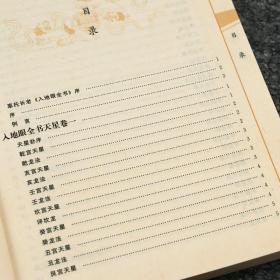 目
录
辜托长老《入地眼全书》序 1
序 2
例言 2
入地眼全书天星卷一
天星卦序 2
乾宫天星 2
乾龙法 2
亥宫天星 2
亥龙法 3
壬宫天星 3
壬龙法 3
坎宫天星 4
评坎龙 4
癸宫天星 4
癸龙法 5
丑宫天星 5
丑龙法 5
艮宫天星
目
录